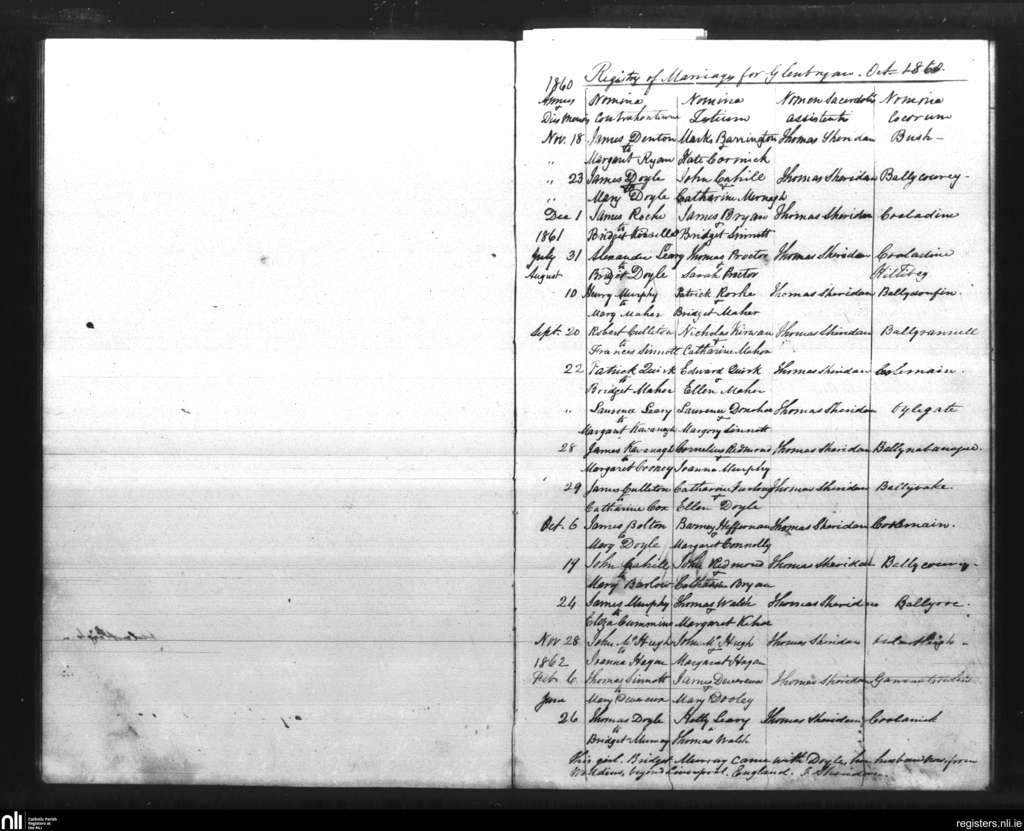 Registry of Marriages for Glenbryan. Oct 1860.
1860
Annus Nomina Nomina Nomen Sacerdotis Nomina
Dies Mensis Contrahentium Testium assistentis Locorum
Nov. 18 James Denton Mark Barrington Thomas Sheridan Bush -
to
" Margaret Ryan Kate Cormick
" 23 James Doyle John Cahill Thomas Sheridan Ballycourcy -
to
" Mary Doyle Catharine Mernagh
Dec 1 James Roche James Bryan Thomas Sheridan Cooladine
to
1861 Bridget Bridget Sinnott
July 31 Alexander Leary Thomas Proctor Thomas Sheridan Cooladine
to
August Bridget Doyle Sarah Proctor
10 Henry Murphy Patrick Rorke Thomas Sheridan Ballydonfin.
to
Mary Maher Bridget Maher
Sept. 20 Robert Culleton Nicholas Kirwan Thomas Sheridan Ballyrannell
to
Frances Sinnott Catharine Mahon
22 Patrick Quirk Edward Quirk Thomas Sheridan Coolemain.
to
Bridget Maher Ellen Maher
" Laurence Leary Laurence Donohoe Thomas Sheridan Oylegate
to
Margaret Kavanagh Margery Sinnott
28 James Kavanagh Cornelius Redmond Thomas Sheridan
to
Margaret Cooney Joanna Murphy
29 James Culleton Catharine Furlong Thomas Sheridan Ballyvake.
to
Catharine Cox Ellen Doyle
Oct. 6 James Bolton Barney Heffernan Thomas Sheridan Coolemain.
to
Mary Doyle Margaret Connolly
17 John Cahill John Redmond Thomas Sheridan Ballycourcy -
to
Mary Barlow Catharine Bryan
24 James Murphy Thomas Walsh Thomas Sheridan Ballyroe.
to
Eliza Cummins Margaret Kehoe
Nov 28 John McHugh John McHugh Thomas Sheridan
to
1862 Joanna Hagan Margaret Hagan
Feb. 6 Thomas Sinnott James Devereux Thomas Sheridan
to
June Mary Devereux Mary Dooley
26 Thomas Doyle Kelly Leary Thomas Sheridan Coolanick
to
Bridget Murray Thomas Walsh
This girl Bridget Murray came with Doyle, her husband now, from
beyond Liverpool. England. T. Sheridan.
nli
Catholic Parish
Registers at
the NLI
registers.nli.ie